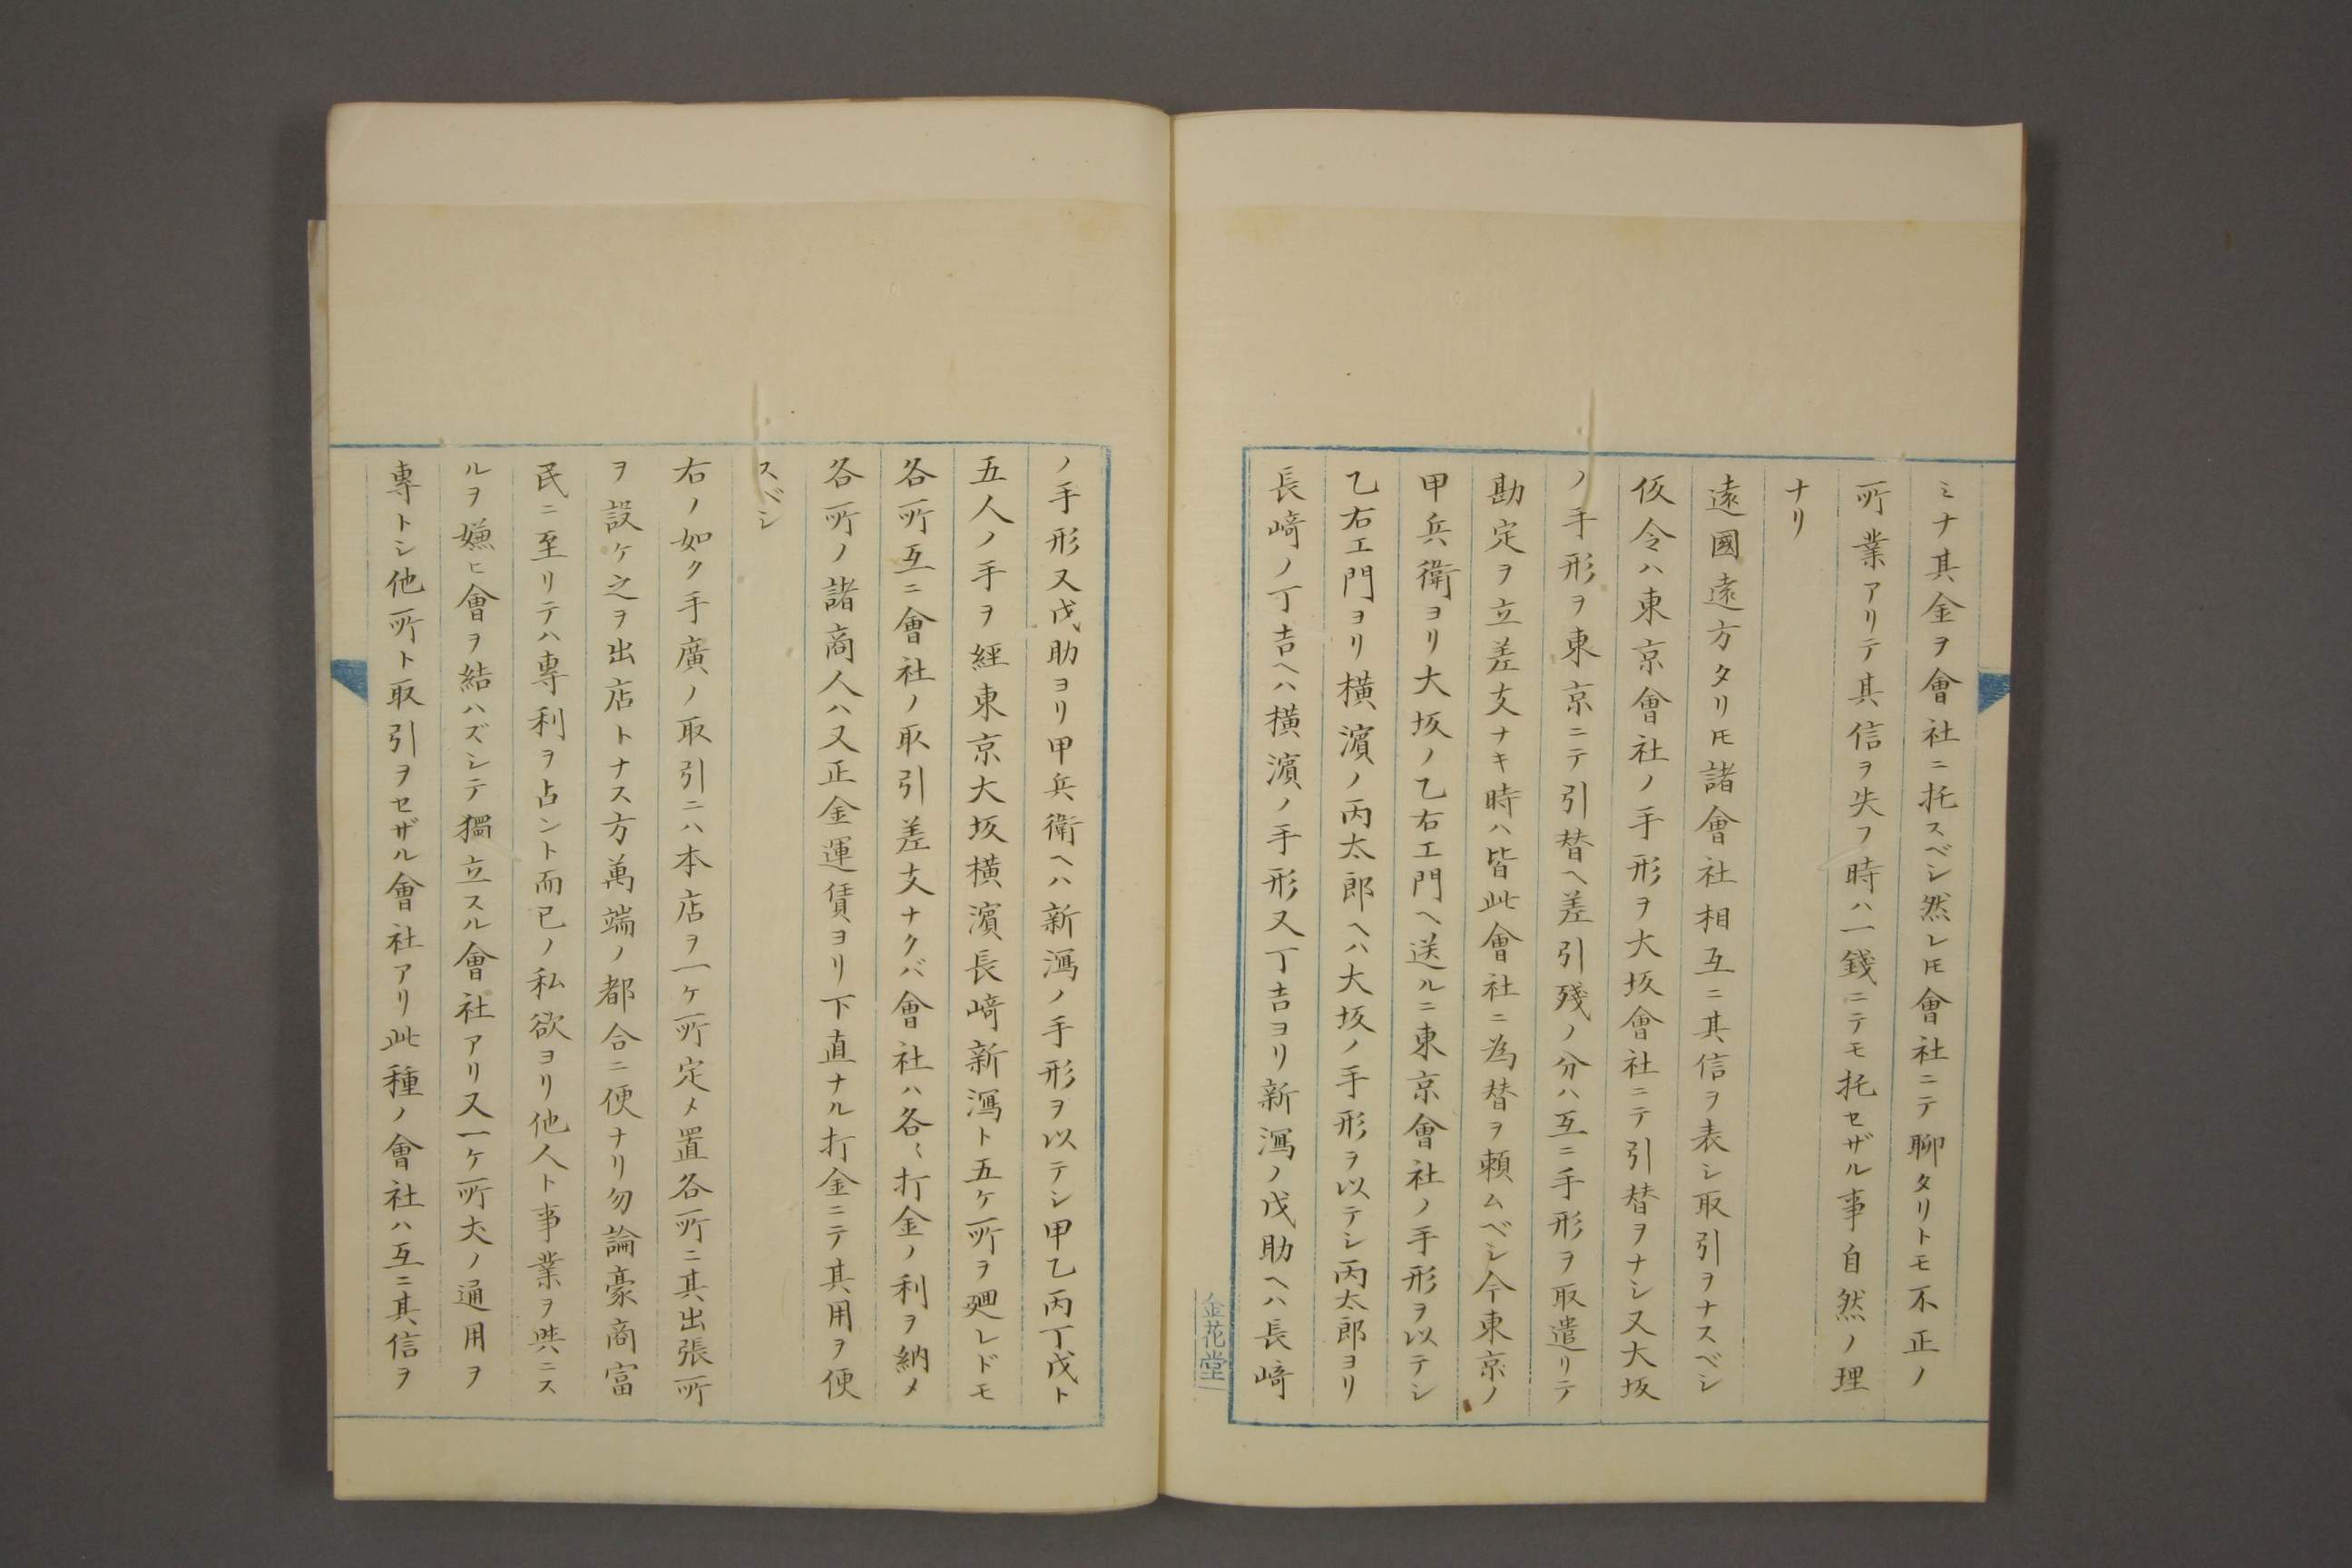 ミナ其金ヲ會社ニ托スベシ然レ𪜈會社ニテ聊タリトモ不正ノ
所業アリテ其信ヲ失フ時ハ一錢ニテモ托セザル事自然ノ理
ナリ
遠國遠方タリ𪜈諸會社相互ニ其信ヲ表シ取引ヲナスベシ
仮令ハ東京會社ノ手形ヲ大坂會社ニテ引替ヲナシ又大坂
ノ手形ヲ東京ニテ引替ヘ差引殘ノ分ハ互ニ手形ヲ取遣リテ
勘定ヲ立差支ナキ時ハ皆此會社ニ為替ヲ頼ムベシ今東京ノ
甲兵衛ヨリ大坂ノ乙右エ門ヘ送ルニ東京會社ノ手形ヲ以テシ
乙右エ門ヨリ横濵ノ丙太郎ヘハ大坂ノ手形ヲ以テシ丙太郎ヨリ
長﨑ノ丁吉ヘハ横濵ノ手形又丁吉ヨリ新潟ノ戊助ヘハ長﨑
金花堂
ノ手形又戊助ヨリ甲兵衛ヘハ新潟ノ手形ヲ以テシ甲乙丙丁戊ト
五人ノ手ヲ經東京大坂横濵長﨑新潟ト五ケ所ヲ廻レドモ
各所互ニ會社ノ取引差支ナクバ會社ハ各〻打金ノ利ヲ納メ
各所ノ諸商人ハ又正金運賃ヨリ下直ナル打金ニテ其用ヲ便
スベシ
右ノ如ク手廣ノ取引ニハ本店ヲ一ケ所定メ置各所ニ其出張所
ヲ設ケ之ヲ出店トナス方萬端ノ都合ニ便ナリ勿論豪商富
民ニ至リテハ專利ヲ占ント而已ノ私欲ヨリ他人ト事業ヲ興ニス
ルヲ嫌ヒ會ヲ結ハズシテ獨立スル會社アリ又一ケ所𠀋ノ通用ヲ
專トシ他所ト取引ヲセザル會社アリ此種ノ會社ハ互ニ其信ヲ